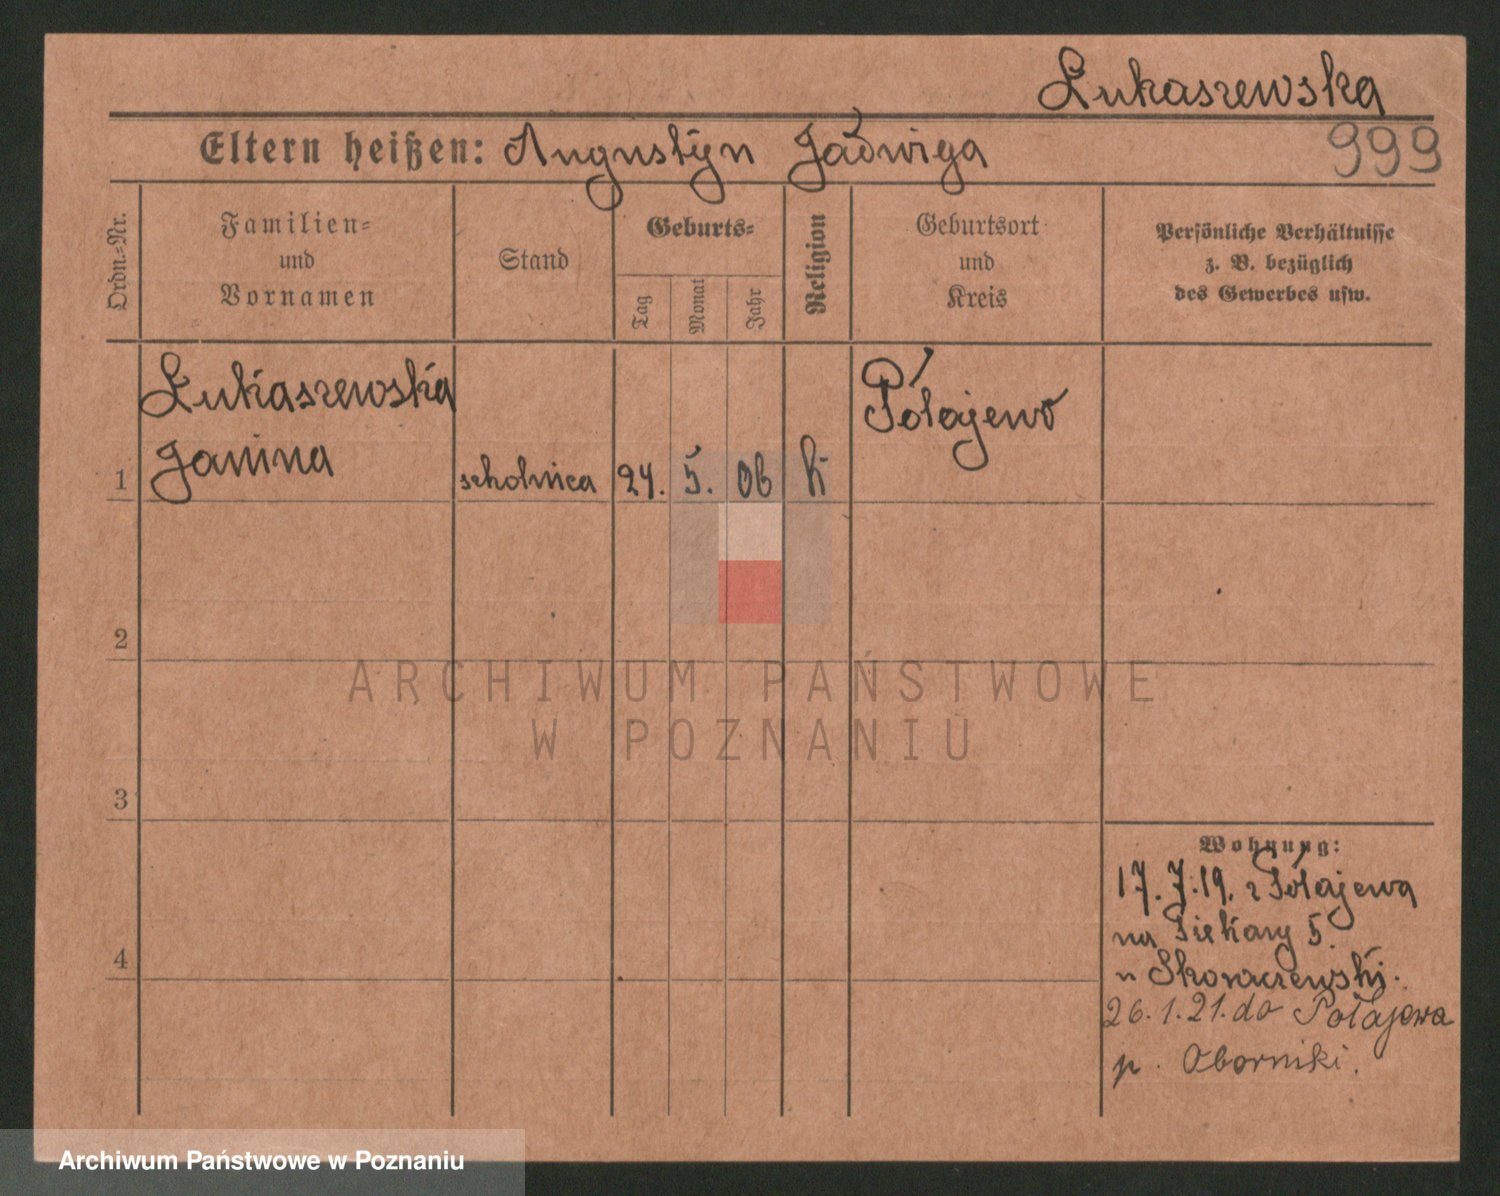 Łukaszewska
Eltern heißen: Augustyn Jadwiga
999
Ordn.-Nr.
Familien-
und
Vornamen
Stand
Geburts-
Tag
Monat
Jahr
Religion
Geburtsort
und
Kreis
Persönliche Verhältnisse
z. B. bezüglich
des Gewerbes usw.
Łukaszewska
Janina
1
szkolnica
24.
5.
06
k
Połajewo
2
3
4
Wohnung:
17.7.19. z Połajewa
na Piekary 5.
u
26.1.21. do Połajewa
p. Oborniki.
ARCHIWUM PAŃSTWOWE
W POZNANIU
Archiwum Państwowe w Poznaniu